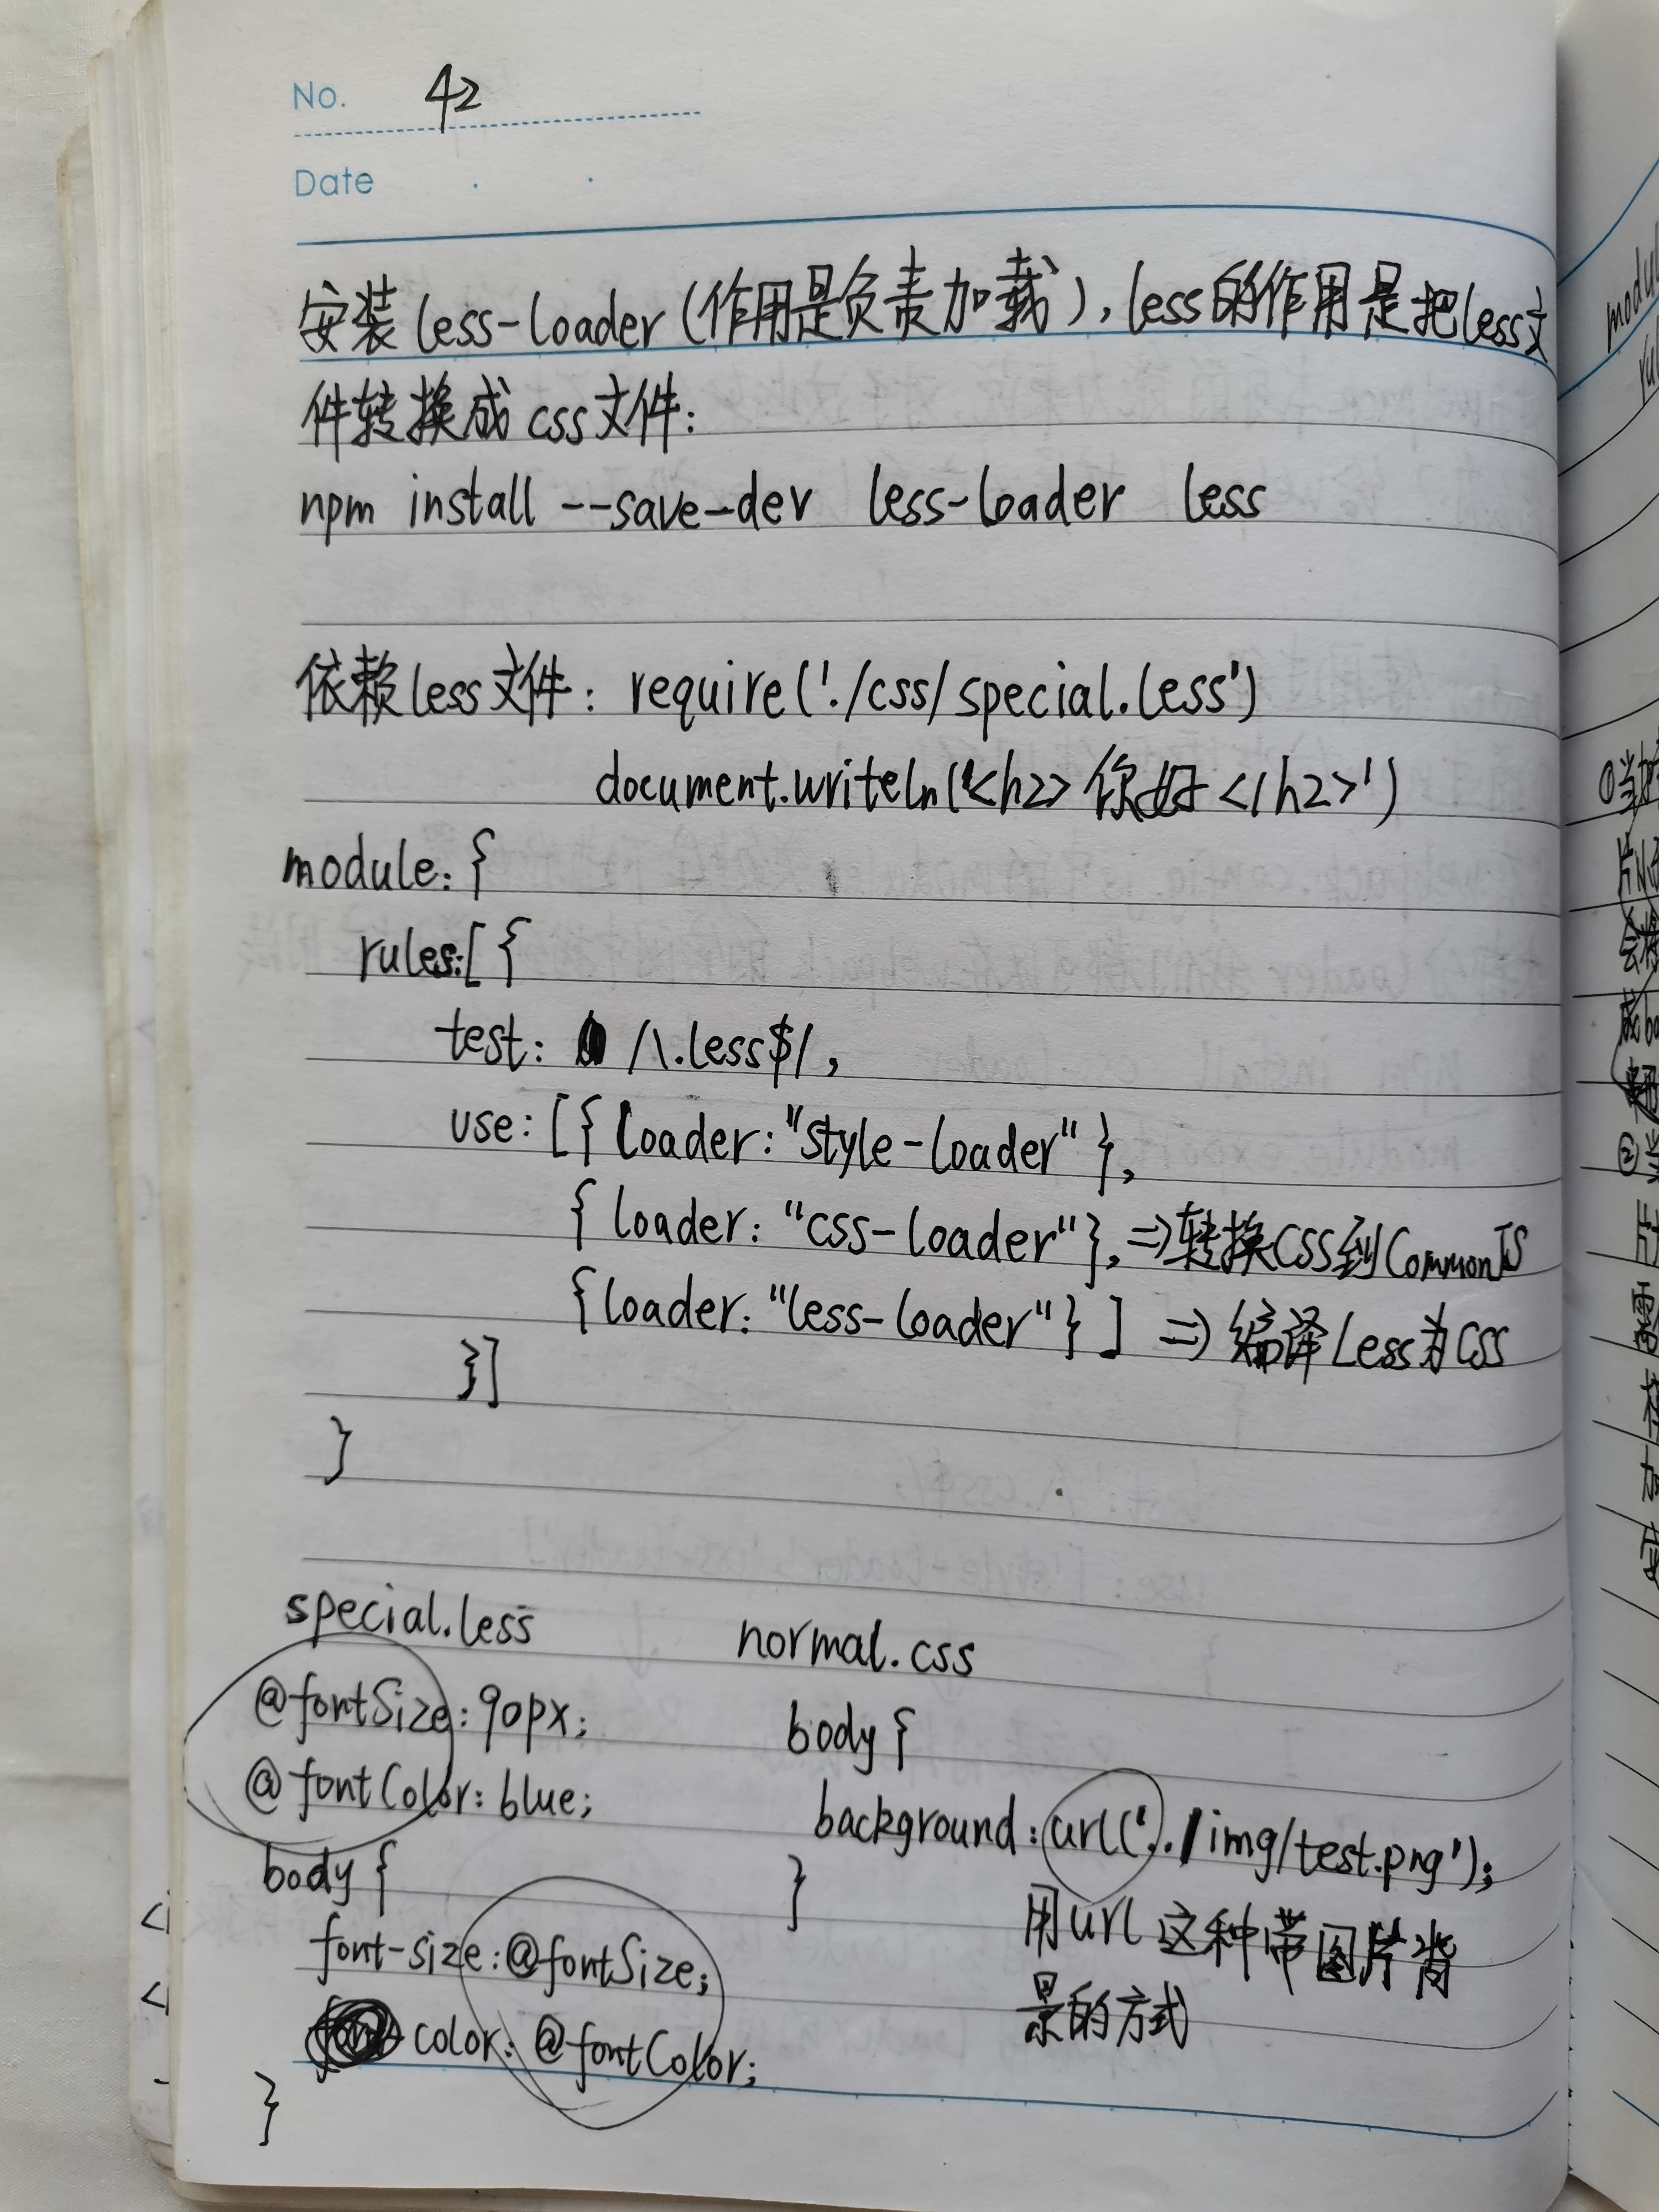 No. 42
Date
安装less-loader(作用是负责加载),less的作用是把less文
件转换成css文件:
npm install --save-dev less-loader less
依赖less文件: require('./css/special.less')
document.writeln('<h2>你好</h2>')
module: {
rules:[{
test: /\.less$/,
use: [{loader: "style-loader"},
{loader: "css-loader"}, =>转换CSS到CommonJS
{loader: "less-loader"}] => 编译Less为CSS
}]
}
special.less
@fontSize: 90px;
@fontColor: blue;
body {
font-size: @fontSize;
color: @fontColor;
}
normal.css
body {
background: url('../img/test.png');
}
用url这种带图片背
景的方式